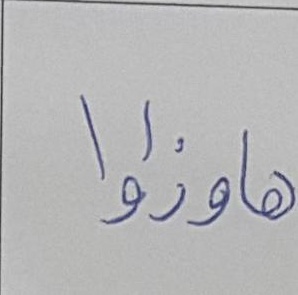 هاوزاوا